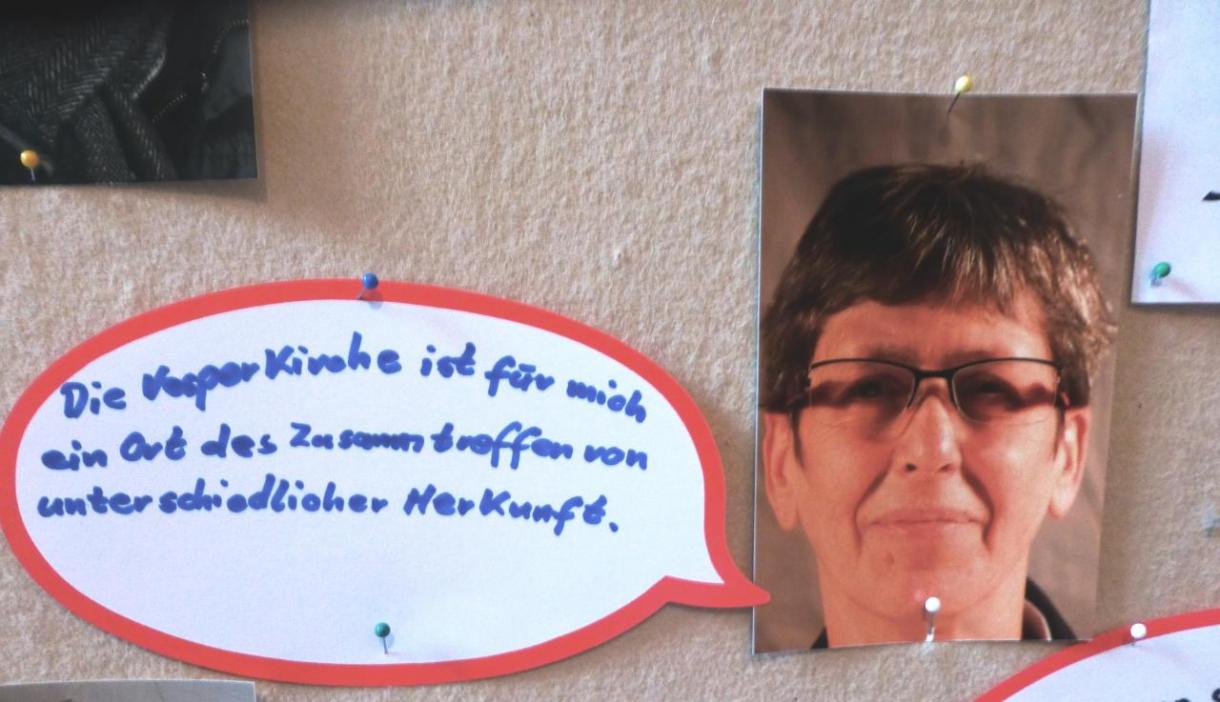 Die VesperKirche ist für mich
ein Ort des Zusammtreffen von
unterschiedlicher HerKunft.